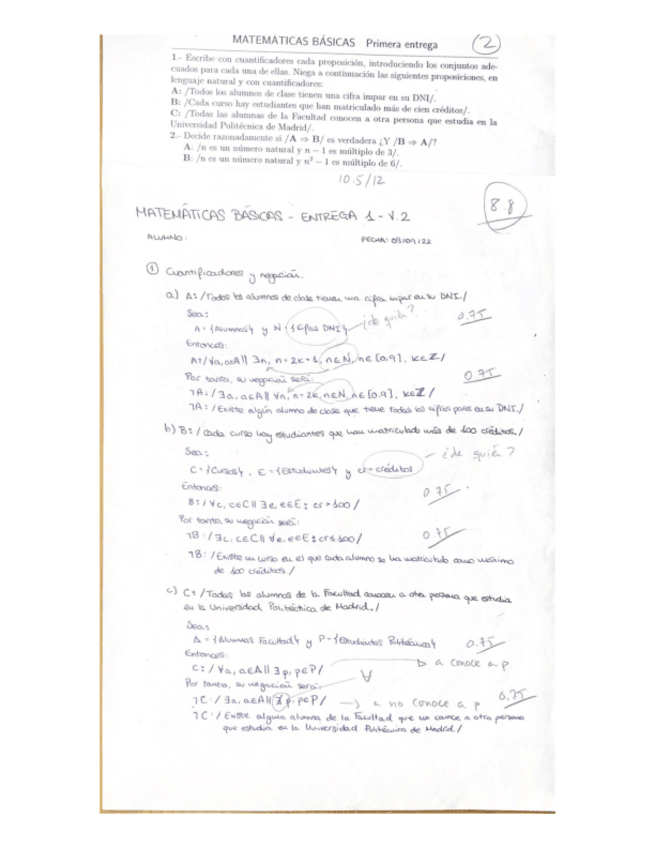 MATEMÁTICAS BÁSICAS Primera entrega
2
1.- Escribe con cuantificadores cada proposición, introduciendo los conjuntos ade-
cuados para cada una de ellas. Niega a continuación las siguientes proposiciones, en
lenguaje natural y con cuantificadores:
A: /Todos los alumnos de clase tienen una cifra impar en su DNI/.
B: /Cada curso hay estudiantes que han matriculado más de cien créditos/.
C: /Todas las alumnas de la Facultad conocen a otra persona que estudia en la
Universidad Politécnica de Madrid/.
2.- Decide razonadamente si /A ⇒ B/ es verdadera ¿Y /B ⇒ A/?
A: /n es un número natural y n − 1 es múltiplo de 3/.
B: /n es un número natural y n³ − 1 es múltiplo de 6/.
10.5/12
8.8
MATEMÁTICAS BÁSICAS - ENTREGA 1 - V.2
ALUMNO:
FECHA: 03/09/22
① Cuantificadores y negación.
a) A: /Todos los alumnos de clase tienen una cifra impar en su DNI./
Sea:
A = {Alumnos} y N = {Cifras DNI} ¿de quién?
0.75
Entonces:
A: / ∀a, a∈A || ∃n, n = 2k+1, n∈N, n∈[0,9], k∈ℤ /
Por tanto, su negación será:
0.75
¬A: / ∃a, a∈A || ∀n, n = 2k, n∈N, n∈[0,9], k∈ℤ /
¬A: / Existe algún alumno de clase que tiene todas las cifras pares en su DNI./
b) B: / Cada curso hay estudiantes que han matriculado más de 100 créditos./
Sea:
¿de quién?
C = {Cursos}, E = {Estudiantes} y cr = créditos
Entonces:
0.75
B: / ∀c, c∈C || ∃e, e∈E; cr > 100 /
Por tanto, su negación será:
0.75
¬B: / ∃c, c∈C || ∀e, e∈E; cr ≤ 100 /
¬B: / Existe un curso en el que cada alumno se ha matriculado como máximo
de 100 créditos. /
c) C: / Todas las alumnas de la Facultad conocen a otra persona que estudia
en la Universidad Politécnica de Madrid. /
Sea:
A = {Alumnas Facultad} y P = {Estudiantes Politécnica}
0.75
Entonces:
a conoce a p
C: / ∀a, a∈A || ∃p, p∈P /
∀
Por tanto, su negación será:
¬C: / ∃a, a∈A || ∄p, p∈P / → a no conoce a p
0,25
¬C: / Existe alguna alumna de la Facultad que no conoce a otra persona
que estudia en la Universidad Politécnica de Madrid /